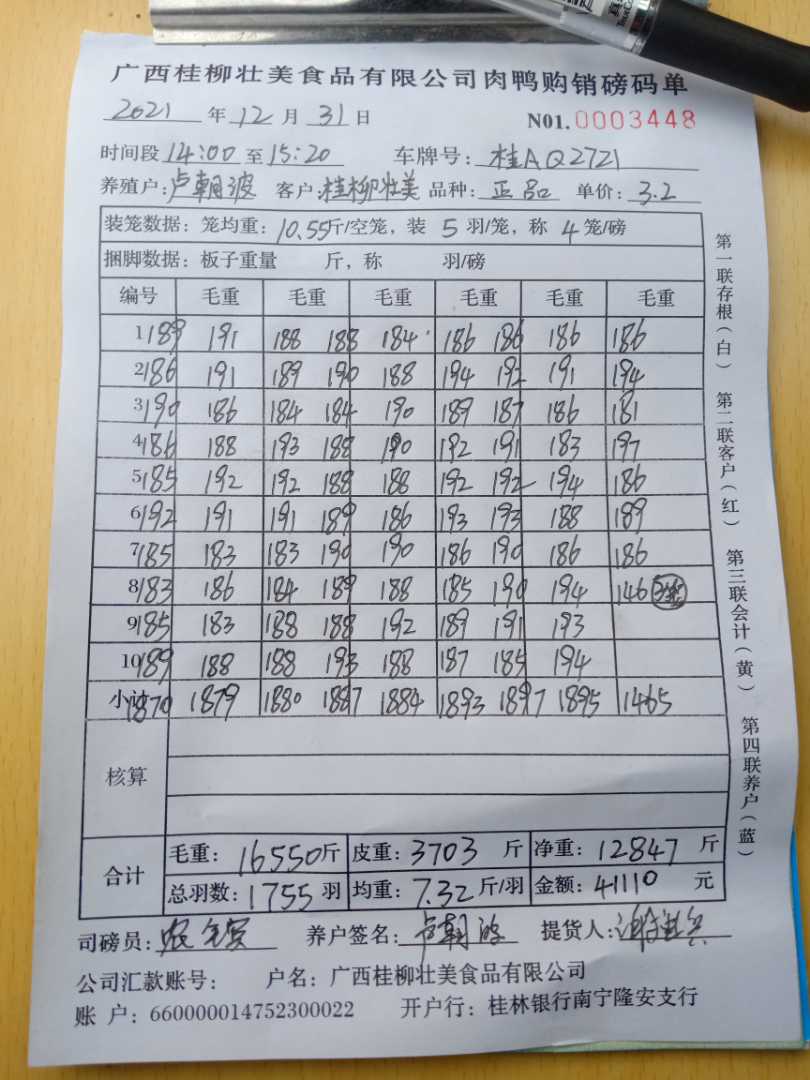 广西桂柳壮美食品有限公司肉鸭购销磅码单
2021 年 12 月 31 日 NO1. 0003448
时间段 14:00 至 15:20 车牌号: 桂AQ2721
养殖户: 卢朝波 客户: 桂柳壮美 品种: 正品 单价: 3.2
装笼数据: 笼均重: 10.55斤/空笼, 装 5 羽/笼, 称 4 笼/磅
捆脚数据: 板子重量 斤, 称 羽/磅
编号 毛重 毛重 毛重 毛重 毛重 毛重
1 189 191 188 188 184 186 186 186 186
2 186 191 189 190 188 194 192 191 194
3 190 186 184 184 190 189 187 186 181
4 186 188 193 188 190 192 191 183 197
5 185 192 192 188 188 192 192 194 186
6 192 191 191 189 186 193 193 188 189
7 185 183 183 190 190 186 190 186 186
8 183 186 184 189 188 185 190 194 146
9 185 183 188 188 192 189 191 193
10 189 188 188 193 188 187 185 194
小计 1870 1879 1880 1887 1884 1893 1897 1895 1465
核算
合计 毛重: 16550斤 皮重: 3703 斤 净重: 12847 斤
总羽数: 1755 羽 均重: 7.32 斤/羽 金额: 41110 元
司磅员: 养户签名: 卢朝波 提货人:
公司汇款账号: 户名: 广西桂柳壮美食品有限公司
账 户: 660000014752300022 开户行: 桂林银行南宁隆安支行
第一联存根(白) 第二联客户(红) 第三联会计(黄) 第四联养户(蓝)